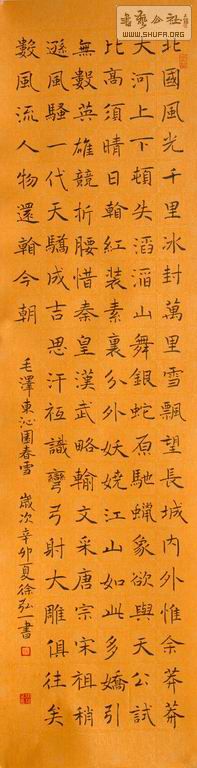 書藝公社
WWW.SHUFA.ORG
北國風光千里冰封萬里雪飄望長城內外惟余莽莽
大河上下頓失滔滔山舞銀蛇原馳蠟象欲與天公試
比高須晴日看紅装素裹分外妖嬈江山如此多嬌引
無數英雄競折腰惜秦皇漢武略輸文采唐宗宋祖稍
遜風騷一代天驕成吉思汗祗識彎弓射大雕俱往矣
數風流人物還看今朝
毛澤東沁園春雪 歲次辛卯夏徐弘一書